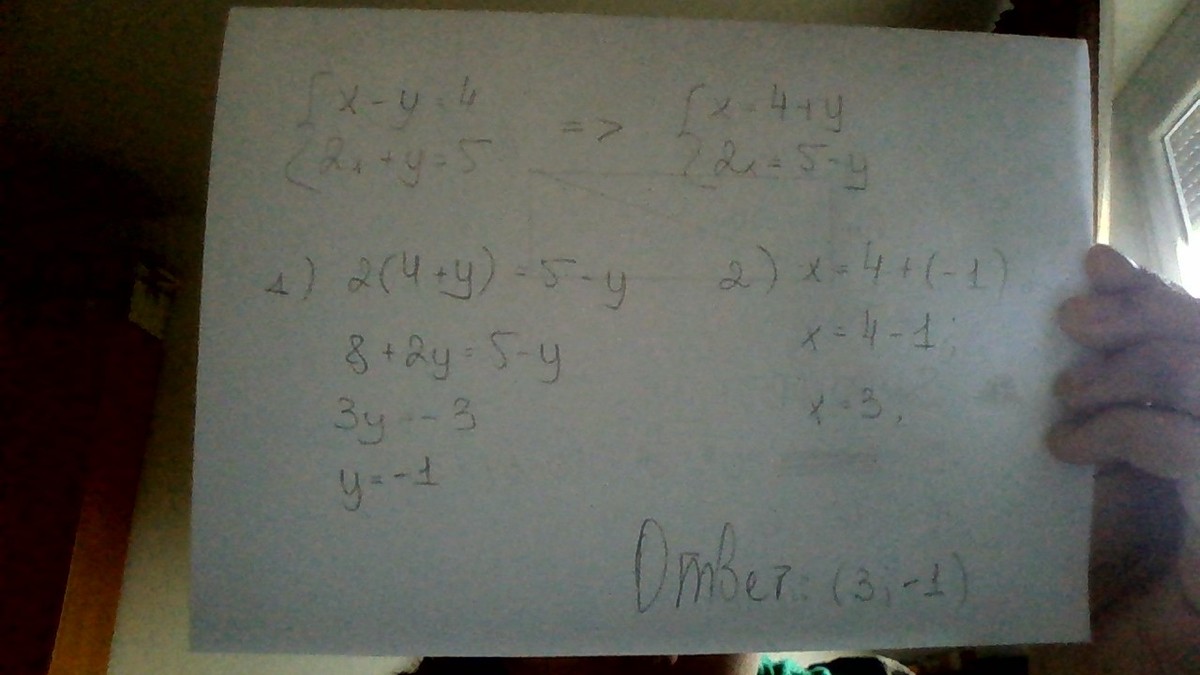 {x-y=4 => {x=4+y
{2x+y=5 {2x=5-y
1) 2(4+y)=5-y
8+2y=5-y
3y=-3
y=-1
2) x=4+(-1)
x=4-1;
x=3,
Ответ: (3;-1)